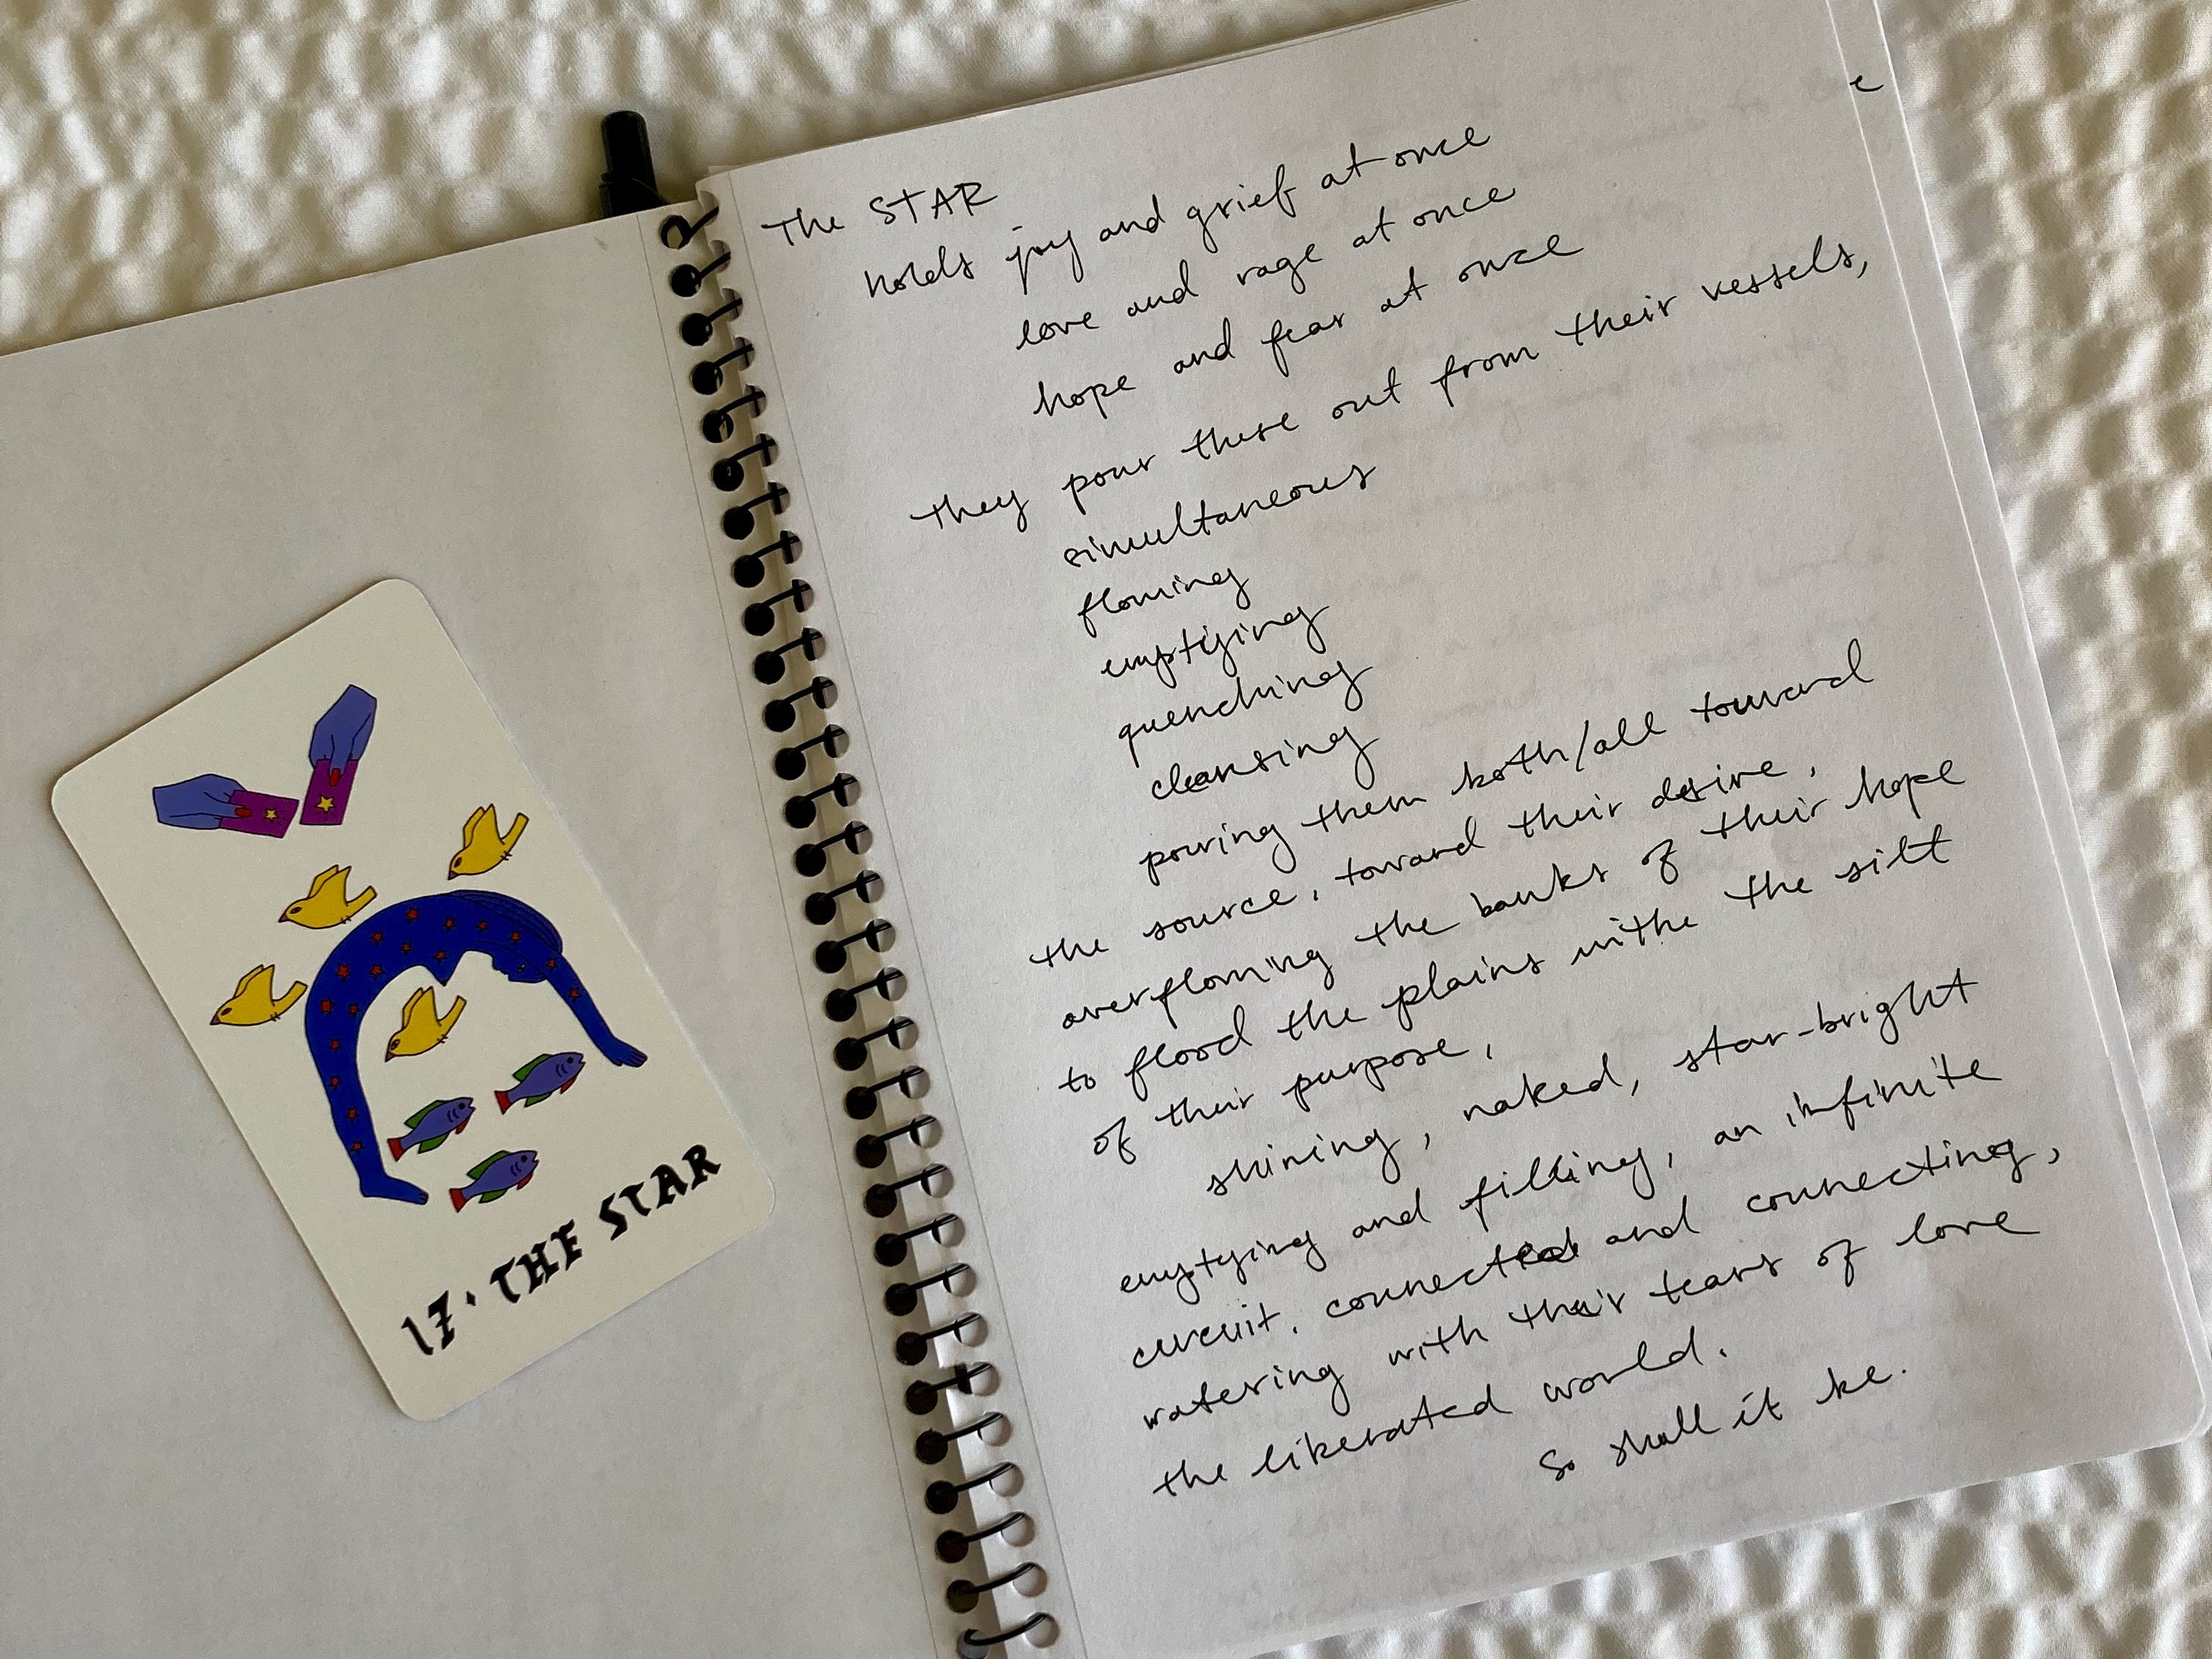 The STAR
holds joy and grief at once
love and rage at once
hope and fear at once
they pour these out from their vessels,
simultaneous
flowing
emptying
quenching
cleansing
pouring them both/all toward
the source, toward their desire,
overflowing the banks of their hope
to flood the plains withe the silt
of their purpose,
shining, naked, star-bright
emptying and filling, an infinite
circuit. connected and connecting,
watering with their tears of love
the liberated world.
So shall it be.
e
17. THE STAR